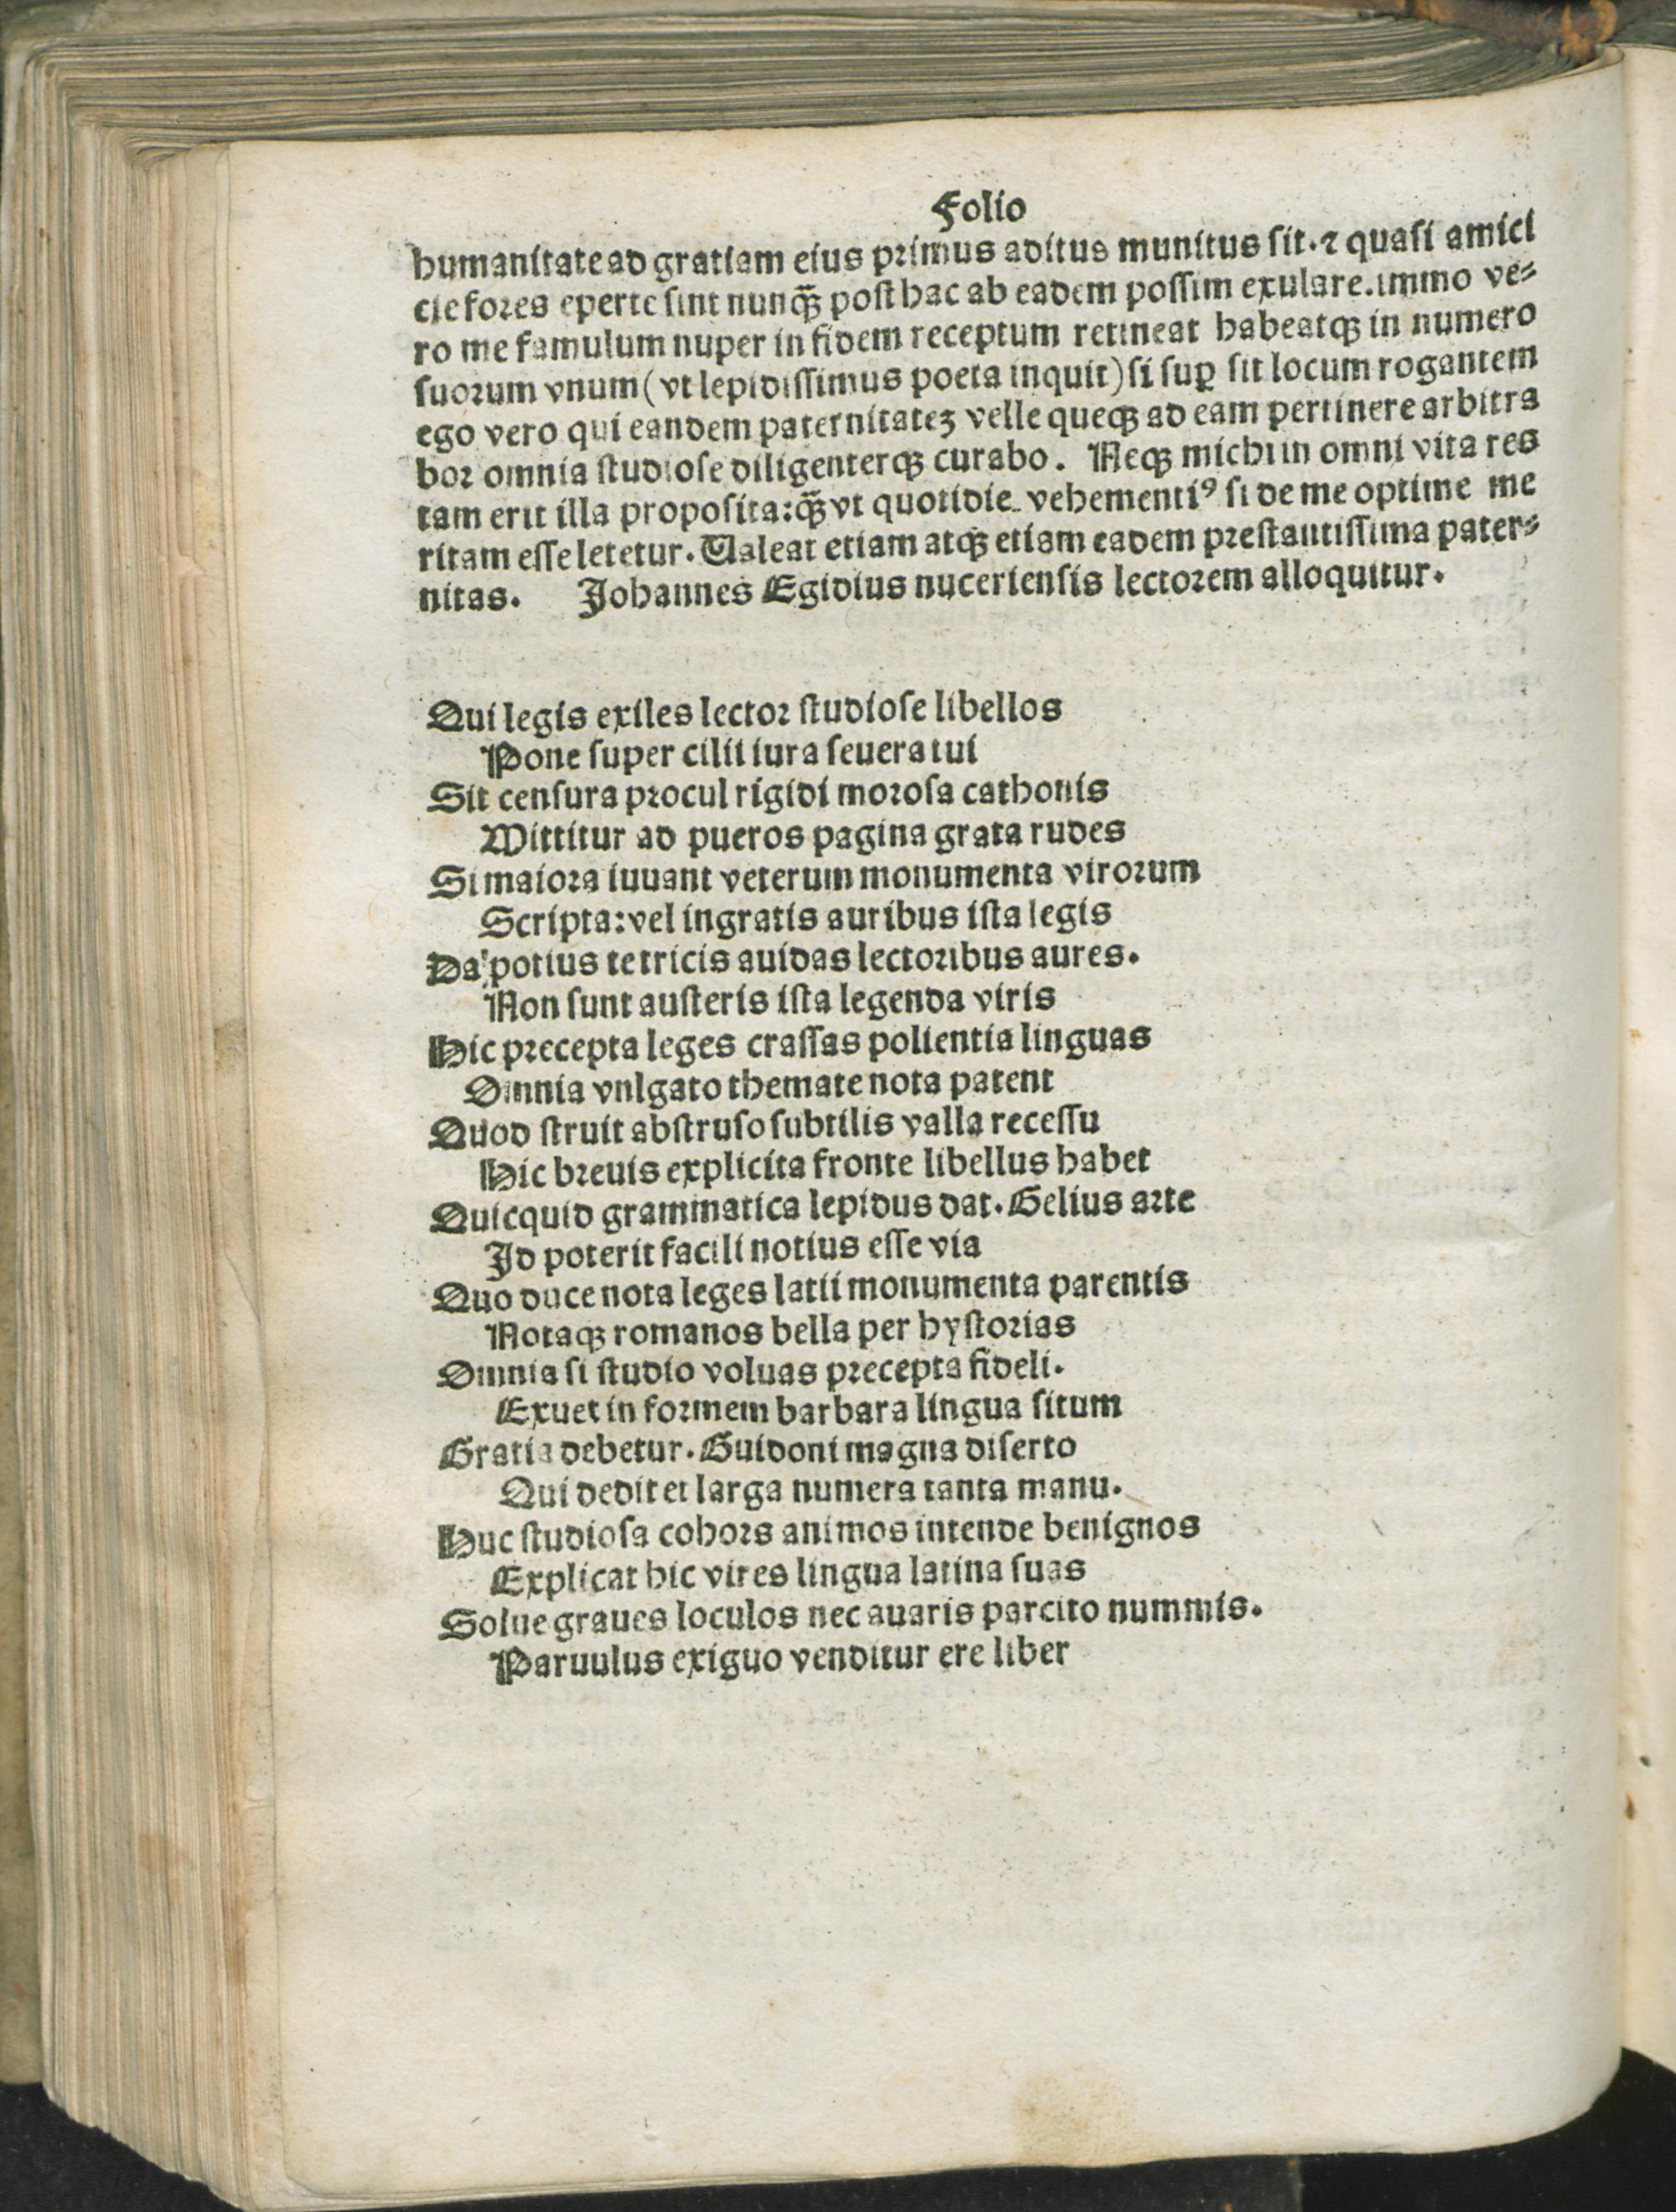 Folio
humanitate ad gratiam eius primus aditus munitus sit. ⁊ quasi amici
cie fores eperte sint nunqꝫ̄ post hac ab eadem possim exulare. immo ve⸗
ro me famulum nuper in fidem receptum retineat habeatqꝫ in numero
suorum vnum (vt lepidissimus poeta inquit) si suꝑ sit locum rogantem
ego vero qui eandem paternitateꝫ velle queqꝫ ad eam pertinere arbitra
bor omnia studiose diligenterqꝫ curabo. Neqꝫ michi in omni vita res
tam erit illa proposita: qꝫ̄ vt quotidie vehementiꝰ si de me optime me
ritam esse letetur. Valeat etiam atqꝫ etiam eadem prestantissima pater⸗
nitas. Johannes Egidius nuceriensis lectorem alloquitur.
Qui legis exiles lector studiose libellos
Pone super cilii iura seuera tui
Sit censura procul rigidi morosa cathonis
Mittitur ad pueros pagina grata rudes
Si maiora iuuant veterum monumenta virorum
Scripta: vel ingratis auribus ista legis
Da potius tetricis auidas lectoribus aures.
Non sunt austeris ista legenda viris
Hic precepta leges crassas polientia linguas
Omnia vnlgato themate nota patent
Quod struit abstruso subtilis valla recessu
Hic breuis explicita fronte libellus habet
Quicquid grammatica lepidus dat. Gelius arte
Id poterit facili notius esse via
Quo duce nota leges latii monumenta parentis
Notaqꝫ romanos bella per hystorias
Omnia si studio voluas precepta fideli.
Exuet in formem barbara lingua situm
Gratia debetur. Guidoni magna diserto
Qui dedit et larga numera tanta manu.
Huc studiosa cohors animos intende benignos
Explicat hic vires lingua latina suas
Solue graues loculos nec auaris parcito nummis.
Paruulus exiguo venditur ere liber